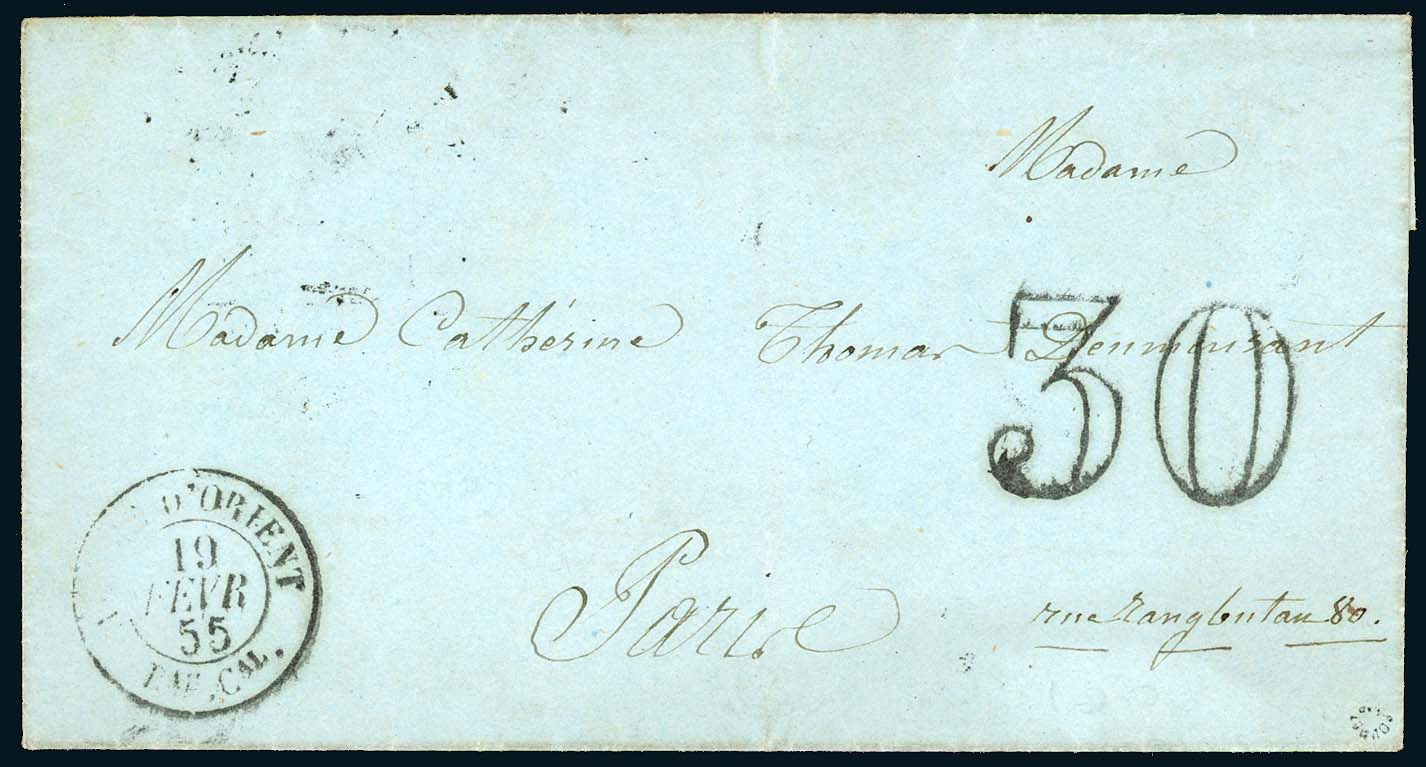 Madame
Madame Cathérine Thomas Deumourant
30
D'ORIENT
19
FEVR
55
CAL.
Paris
rue Rangbutau 80.